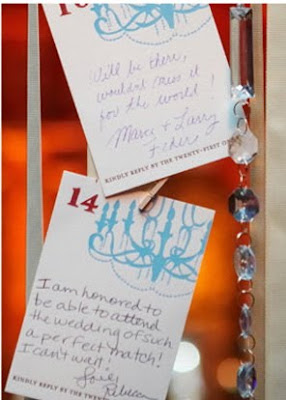 Will be there,
wouldn't miss it
for the world!
Marci + Larry
KINDLY REPLY BY THE TWENTY-FIRST
14
I am honored to
be able to attend
the wedding of such
a perfect match!
I can't wait!
Love,
Rebecca
KINDLY REPLY BY THE